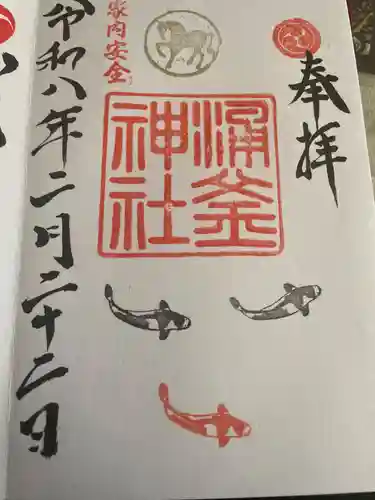 奉拝
涌釜
神社
家内安全
令和八年二月二十二日